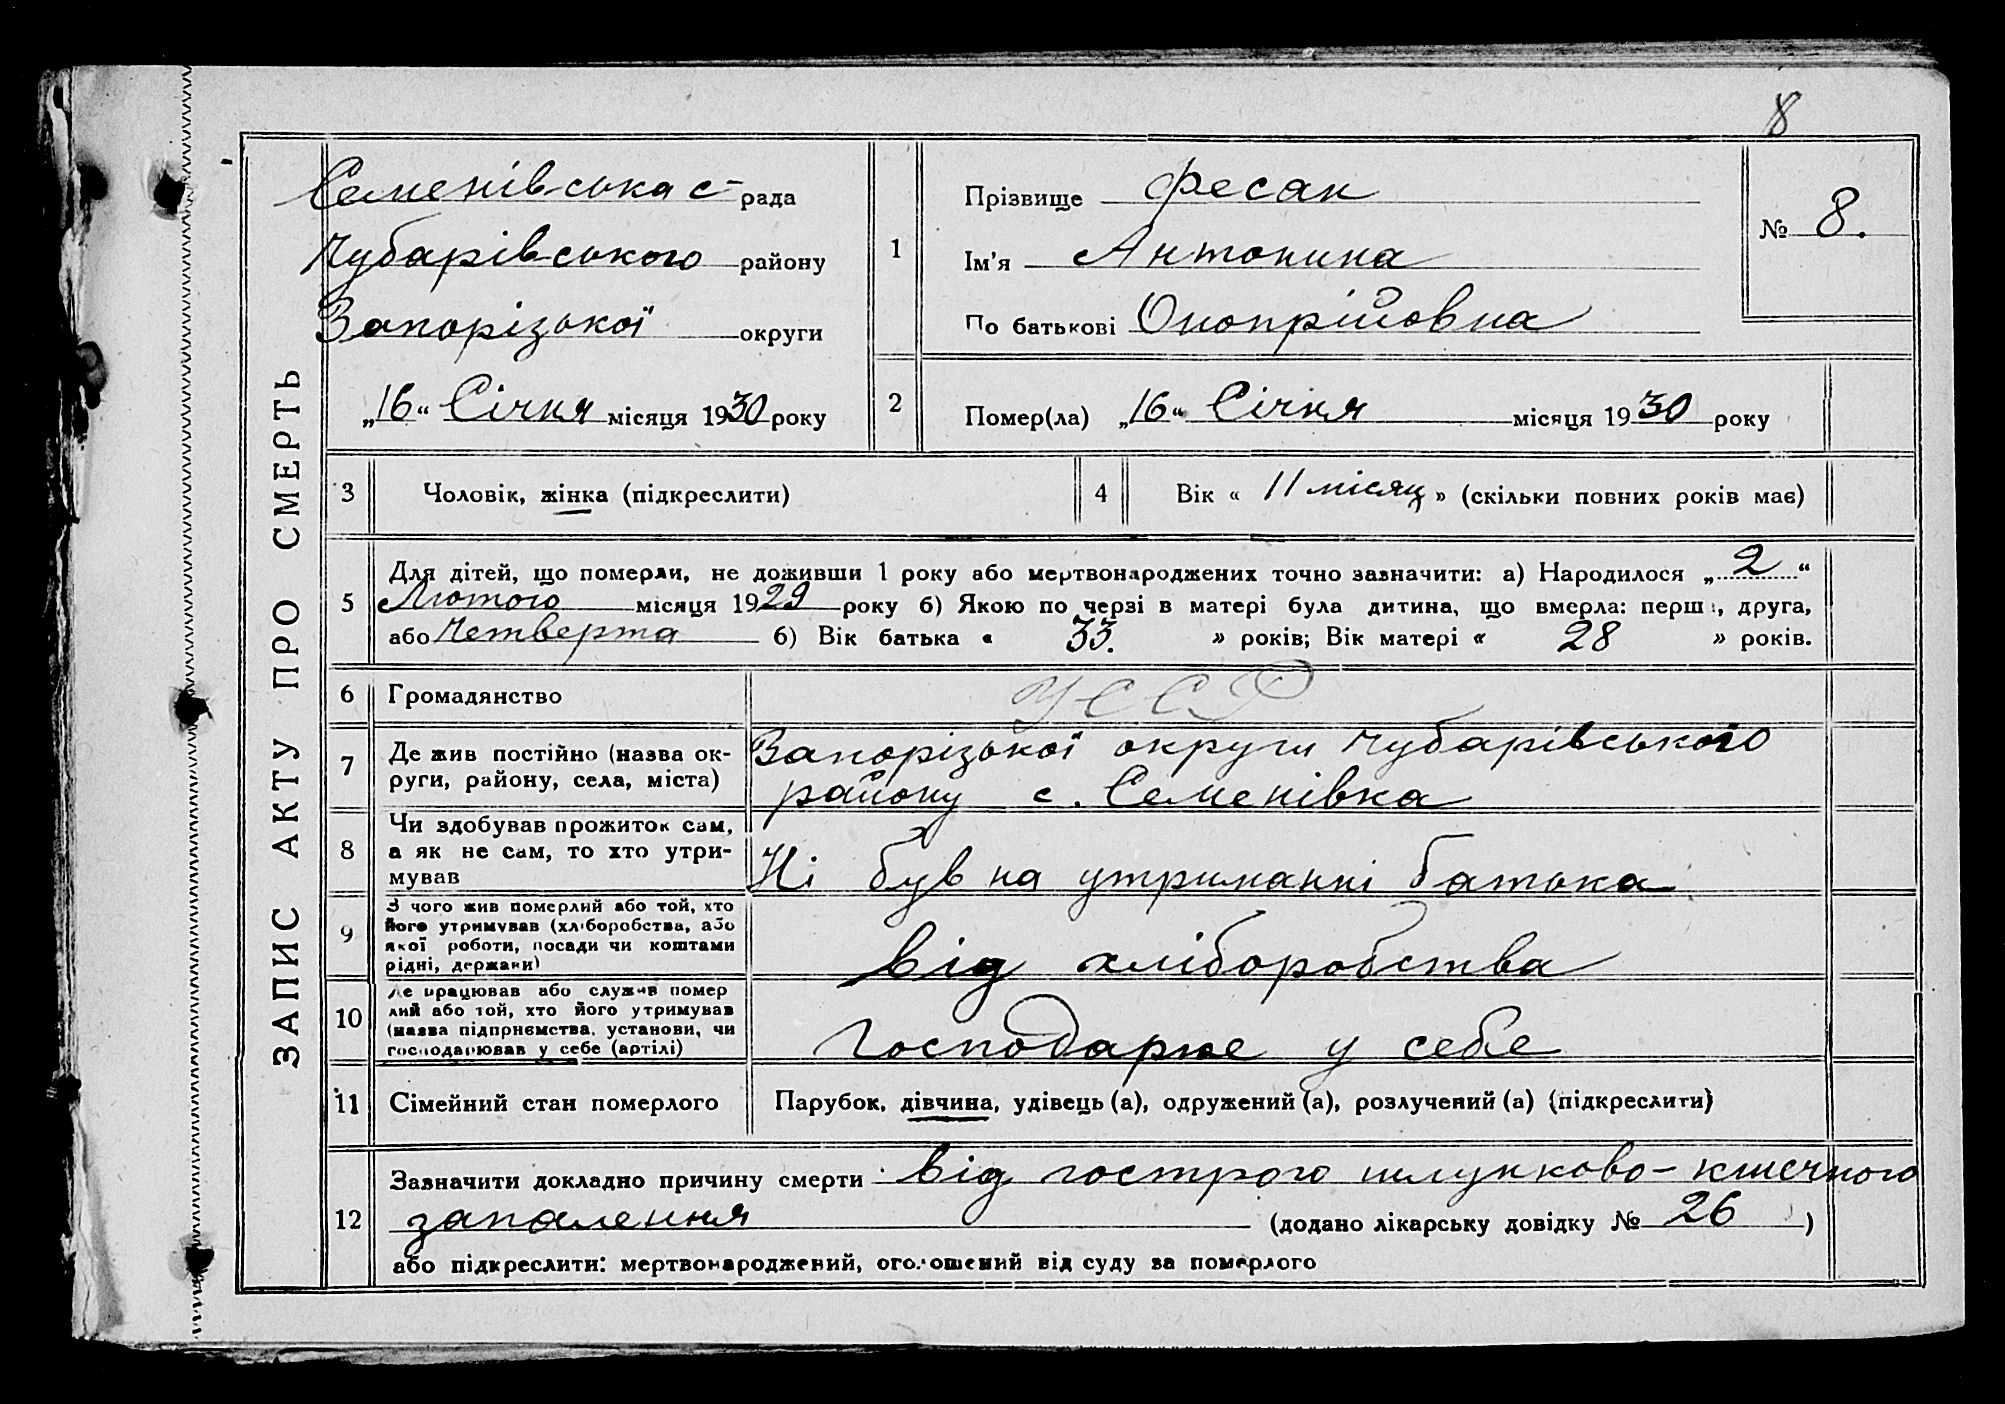 8
ЗАПИС АКТУ ПРО СМЕРТЬ
Семенівська с- рада
Чубарівського району
Запорізької округи
„16“ Січня місяця 1930 року
1
Прізвище Фесак
Ім'я Антонина
По батькові Онопрійовна
№ 8.
2 Помер(ла) „16“ Січня місяця 1930 року
3 Чоловік, жінка (підкреслити)
4 Вік « 11 місяц » (скільки повних років має)
5 Для дітей, що померли, не доживши 1 року або мертвонароджених точно зазначити: а) Народилося „2“
Лютого місяця 1929 року б) Якою по черзі в матері була дитина, що вмерла: перша, друга,
або Четверта б) Вік батька « 33. » років; Вік матері « 28 » років.
6 Громадянство УССР
7 Де жив постійно (назва ок-
руги, району, села, міста)
Запорізької округи Чубарівського
району с. Семенівка
8 Чи здобував прожиток сам,
а як не сам, то хто утри-
мував
Ні був на утриманні батька
9 З чого жив померлий або той, хто
його утримував (хліборобства, або
якої роботи, посади чи коштами
рідні, держави)
від хліборобства
10 Де працював або служив помер
лий або той, хто його утримував
(назва підприємства, установи, чи
господарював у себе (артілі)
Господарює у себе
11 Сімейний стан померлого Парубок, дівчина, удівець (а), одружений (а), розлучений (а) (підкреслити)
12 Зазначити докладно причину смерти від гострого шлунково-кишечного
запалення (додано лікарську довідку № 26 )
або підкреслити: мертвонароджений, оголошений від суду за померлого